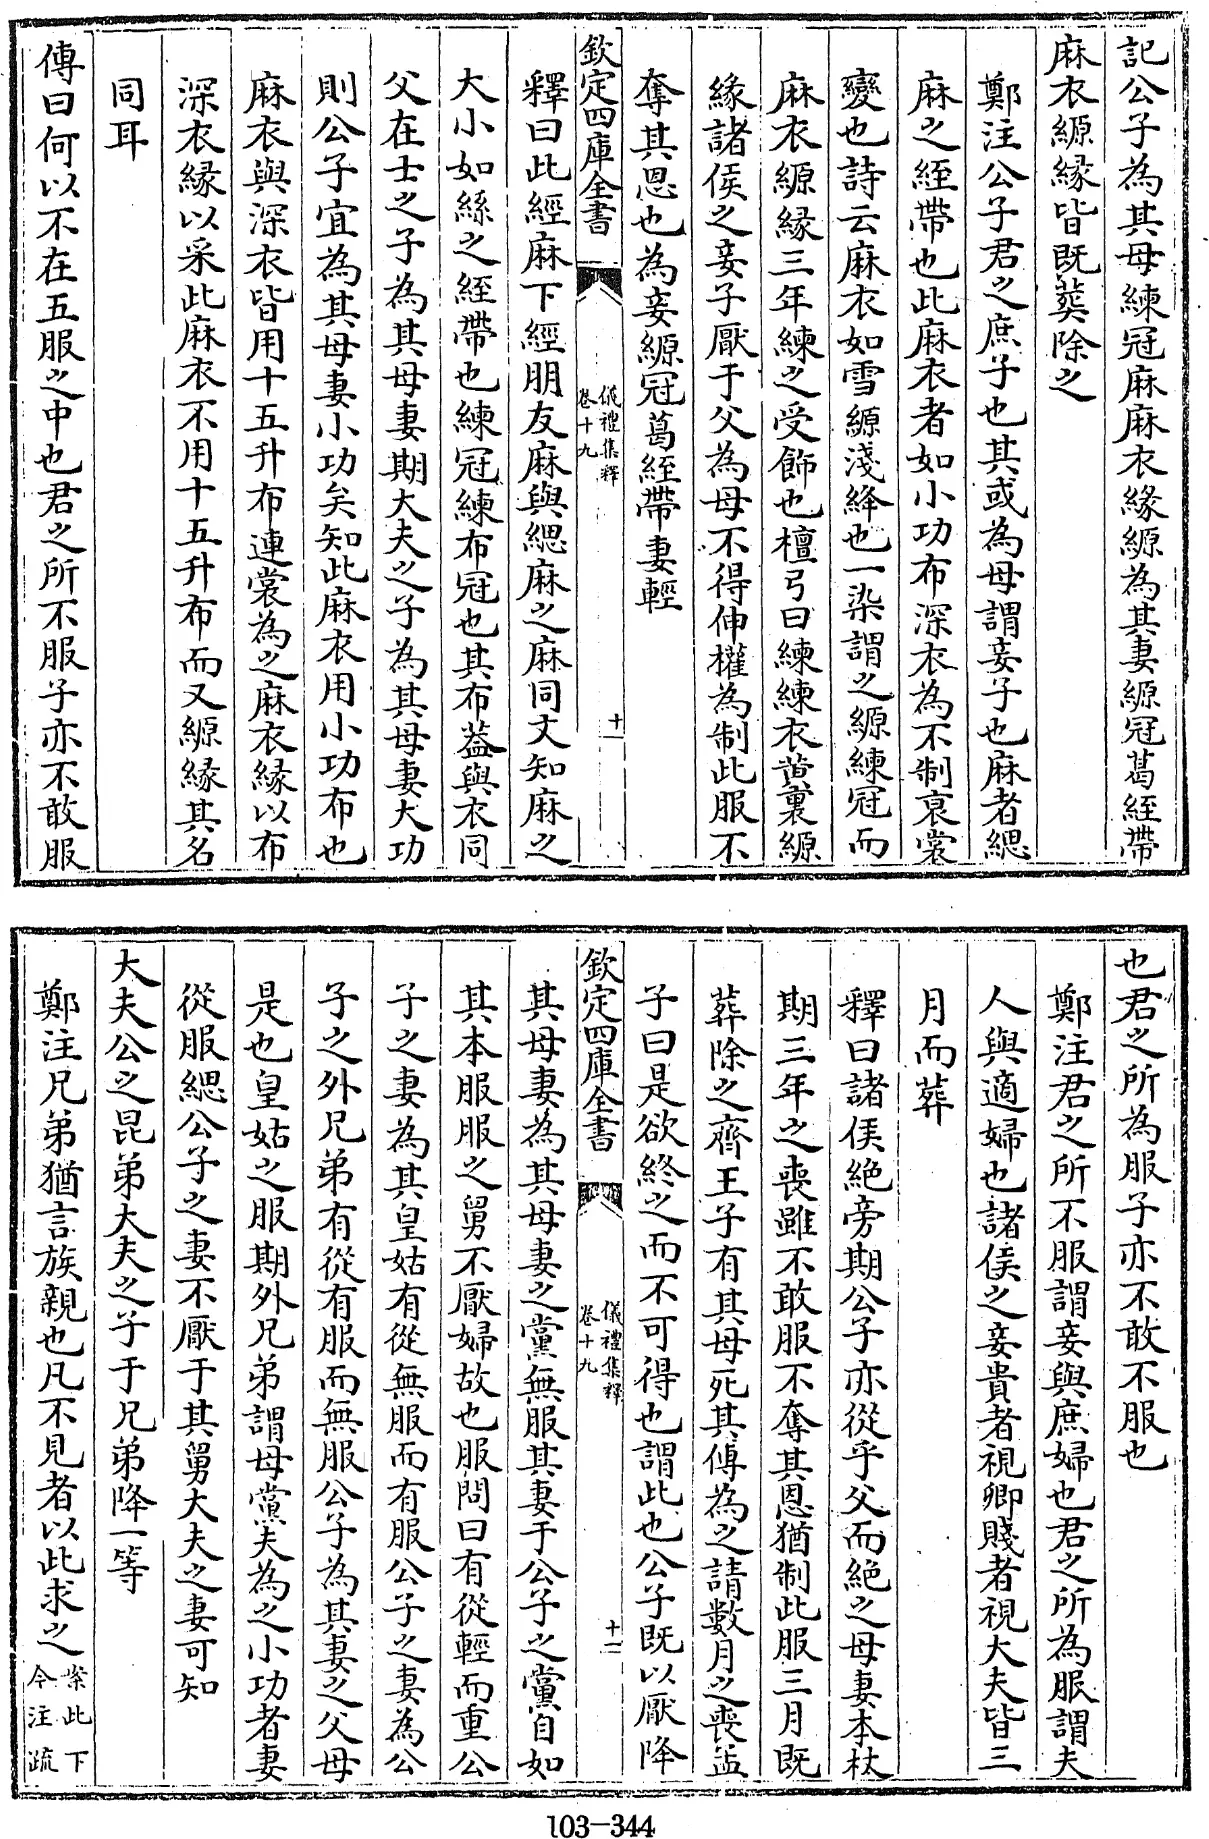 記公子為其母練冠麻麻衣縁縓為其妻縓冠葛絰帶
麻衣縓縁皆既葬除之
鄭注公子君之庶子也其或為母謂妾子也麻者緦
麻之絰帶也此麻衣者如小功布深衣為不制衰裳
變也詩云麻衣如雪縓淺絳也一染謂之縓練冠而
麻衣縓縁三年練之受飾也檀弓曰練練衣黄裏縓
緣諸侯之妾子厭于父為母不得伸權為制此服不
奪其恩也為妾縓冠葛絰帶妻輕
欽定四庫全書
儀禮集釋
卷十九
十一
釋曰此經麻下經朋友麻與緦麻之麻同文知麻之
大小如緦之絰帶也練冠練布冠也其布葢與衣同
父在士之子為其母妻期大夫之子為其母妻大功
則公子宜為其母妻小功矣知此麻衣用小功布也
麻衣與深衣皆用十五升布連裳為之麻衣縁以布
深衣縁以采此麻衣不用十五升布而又縓縁其名
同耳
傳曰何以不在五服之中也君之所不服子亦不敢服
也君之所為服子亦不敢不服也
鄭注君之所不服謂妾與庶婦也君之所為服謂夫
人與適婦也諸侯之妾貴者視卿賤者視大夫皆三
月而葬
釋曰諸侯絶旁期公子亦從乎父而絶之母妻本杖
期三年之喪雖不敢服不奪其恩猶制此服三月既
葬除之齊王子有其母死其傅為之請數月之喪孟
子曰是欲終之而不可得也謂此也公子既以厭降
欽定四庫全書
儀禮集釋
卷十九
十二
其母妻為其母妻之黨無服其妻于公子之黨自如
其本服服之舅不厭婦故也服問曰有從輕而重公
子之妻為其皇姑有從無服而有服公子之妻為公
子之外兄弟有從有服而無服公子為其妻之父母
是也皇姑之服期外兄弟謂母黨夫為之小功者妻
從服緦公子之妻不厭于其舅大夫之妻可知
大夫公之昆弟大夫之子于兄弟降一等
鄭注兄弟猶言族親也凡不見者以此求之案此下
今注疏
103-344